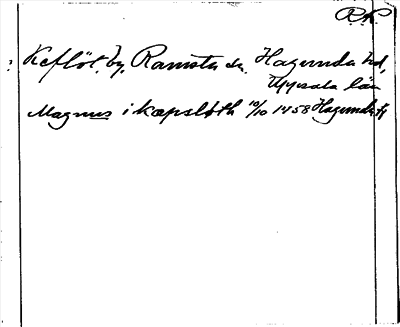 R.P.
Keflöt, by, Ramsta sn, Hagunda hd,
Uppsala län
Magnus i kapsløth 10/10 1458 Hagunda